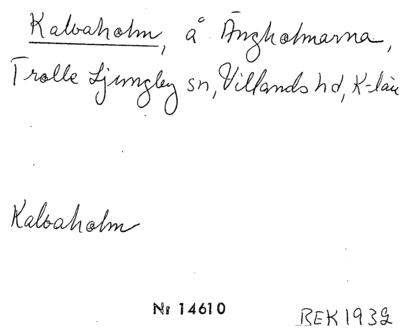 Kalvaholm, å Ängholmarna,
Trolle Ljungby sn, Villands hd, K-län
Kalvaholm
Nr 14610
BEK 1932